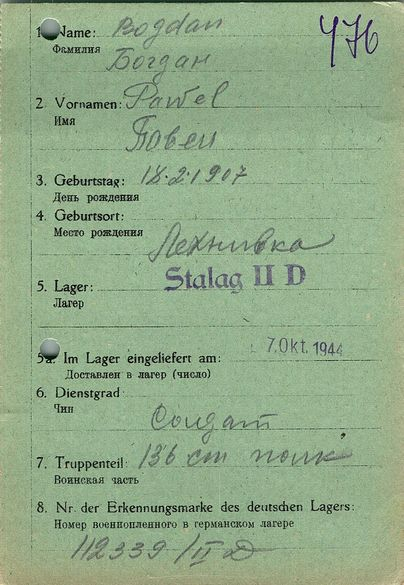 1. Name: Bogdan
Фамилия
Богдан
476
2. Vornamen: Pawel
Имя
Павел
3. Geburtstag: 18.2.1907
День рождения
4. Geburtsort:
Место рождения
Лехнивка
5. Lager: Stalag II D
Лагер
5a. Im Lager eingeliefert am: 7. Okt. 1944
Доставлен в лагер (число)
6. Dienstgrad
Чин
Солдат
7. Truppenteil 136 полк
Воинская часть
8. Nr. der Erkennungsmarke des deutschen Lagers:
Номер военнопленного в германском лагере
112339/II D